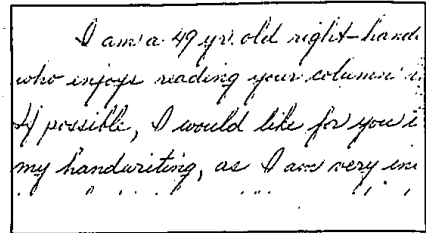 I am a 49 yr. old right-hand
who enjoys reading your column
If possible, I would like for you
my handwriting, as I am very